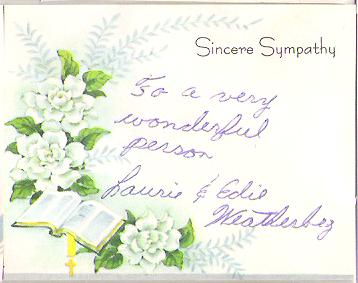 Sincere Sympathy
To a very
wonderful
person
Laurie & Edie
Weatherbey